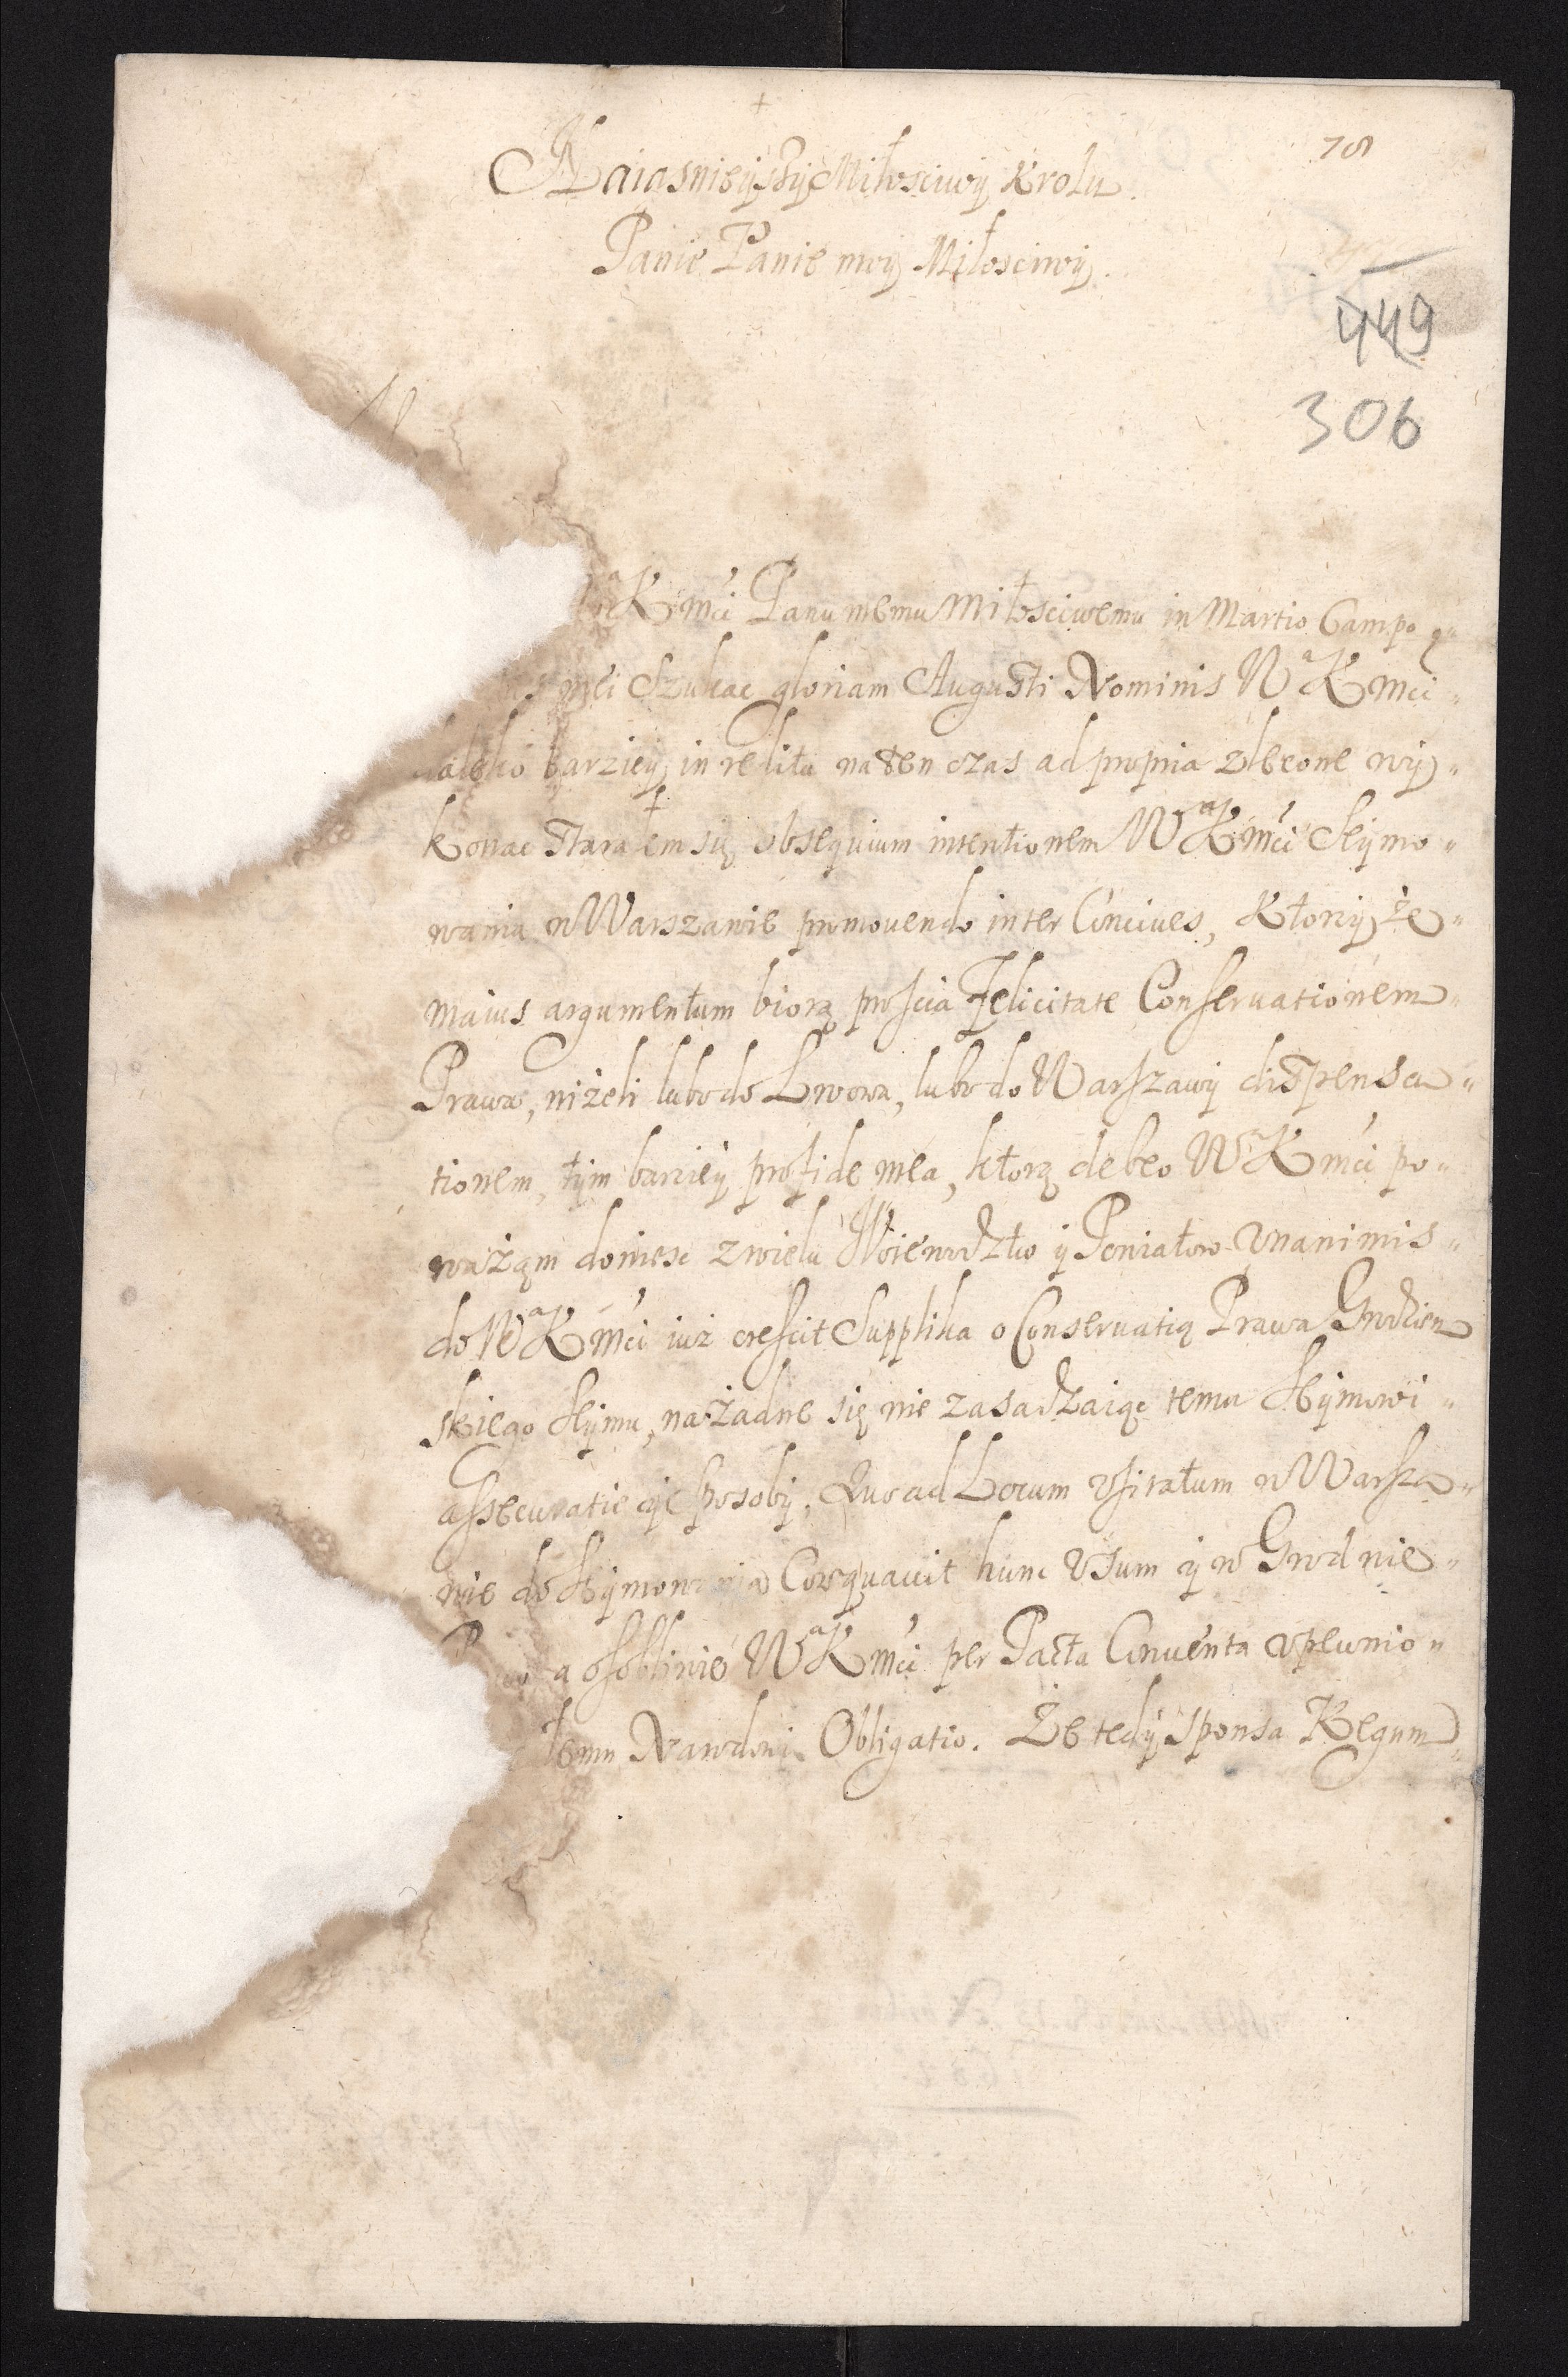 78
Naiasnieyszy Miłosciwy Krolu.
Panie Panie moy Miłosciwy.
449
306
K Mci Panu memu Miłosciwemu in Martio Campo
mei Szukac gloriam Augusti Nominis WaKMci
daleko barziey in reditu na ten czas ad propria zlecone wy
konac starałem się obsequium intentionem WaKMci Seymo
wania w Warszawie promovendo inter Concives, Ktorzy że
maius argumentum biorą pro scia Felicitate Conservationem
Prawa, niżeli lubo do Lwowa, lubo do Warszawy dispensa
tionem, tym barziey pro fide mea, ktorą debeo WaKMci po
ważąm doniesc z wielu Woiewodztw y Powiatow Unanimis
do WaKMci iuż crescit Supplika o Conservatią Prawa Grodzien
skiego Seymu, na żadne się nie zasadzaiąc temu Seymowi
assecuratie y Sposoby. Quo ad Locum Usitatum w Warsza
wie do Seymowania Coæquavit hunc Usum y w Grodnie
a osobliwie WaKMci per Pacta Conventa upewnio
temu Narodowi Obligatio. Że tedy Sponsa Regum